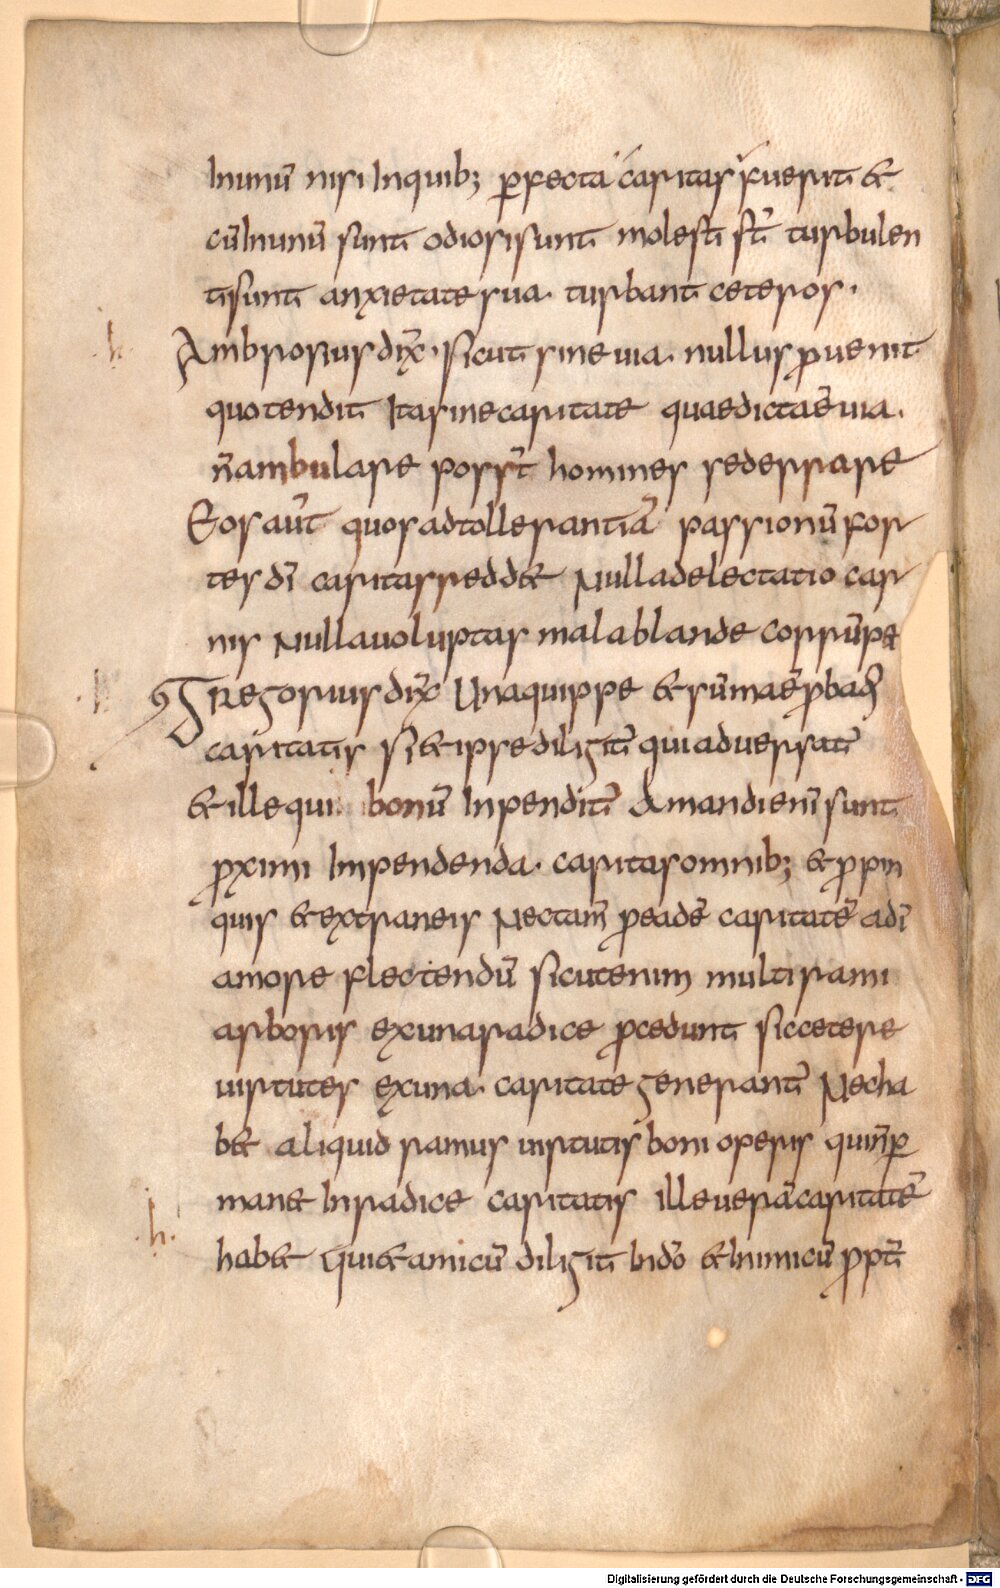 Inunū nisi Inquib; ꝑfecta caritas fuerit &
cūInunū sunt odiosisunt molesti sт̄ turbulen
tisunt anxietate sua. turbant ceteros.
h. Ambrosius dix̄. sicut sine uia. nullus ꝓuenit
quo tendit Ita sine caritate quae dicta ē uia.
n̄ambulare possт̄ homines sed errare
Eos aūt quos ad tollerantiā passionū for
tes dī caritas redd& Nulla delectatio car
nis Nulla uoluptas mala blande corrūpe
h Gregorius dix̄ Unaquippe & sūma ē ꝓbatio
caritatis si & ipse diligit̄ qui aduersat̄
& ille qui bonū Inpendit̄ Amandi enī sunt
ꝓximi Impendenda. caritas omnib; & ꝓpin
quis & extraneis Nec tam̄ ꝓ eadē caritatē a dī
amore flectendū sicut enim multi rami
arboris ex una radice ꝓcedunt sic cetere
uirtutes ex una. caritate generant̄ Nec ha
b& aliquid ramus uirtutis boni operis qui n̄ ꝑ
man& In radice caritatis ille uerā caritatē
h. hab& Qui & amicū diligit In dō & Inimicū ꝓpт̄
Digitalisierung gefördert durch die Deutsche Forschungsgemeinschaft - DFG